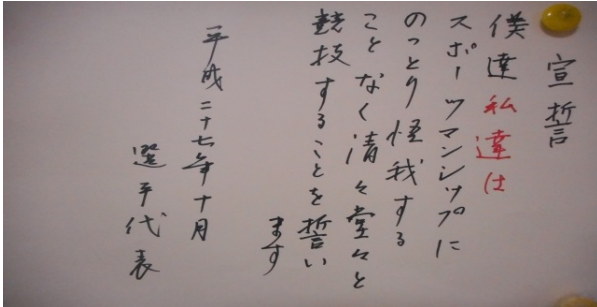 宣誓
僕達私達は
スポーツマンシップに
のっとり怪我する
ことなく清々堂々と
競技することを誓い
ます
平成二十七年十月
選手代表